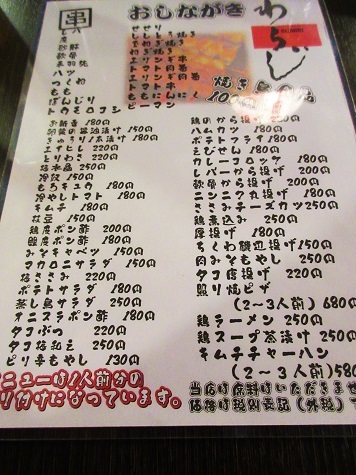 串
おしながき
わらじ
焼き鳥
100円
八ツ
つくね
もも
ぼんじり
トウモロコシ
せせり
ししとう焼き
ねぎ焼き
エリンギ串
トマト肉巻
エリンギ肉巻
トマト串
ももにんにく
ピーマン
お新香 180円
150円
きゅうり1本漬け 180円
エイヒレ 220円
とりわさ 220円
梅水晶 250円
冷奴 150円
もろキュウ 180円
冷やしトマト 180円
キムチ 180円
枝豆 150円
鶏皮ポン酢 200円
鰹皮ポン酢 180円
みそキャベツ 150円
マカロニサラダ 150円
梅ささみ 220円
ポテトサラダ 180円
蒸し鶏サラダ 250円
オニスラポン酢 180円
タコぶつ 220円
タコ梅和え 250円
ピリ辛もやし 130円
鶏のから揚げ
ハムカツ 180円
ポテトフライ 180円
えびせん 180円
カレーコロッケ 180円
レバーから揚げ 200円
軟骨から揚げ 200円
ニンニク丸揚げ 180円
ささみチーズカツ250円
鶏煮込み 250円
厚揚げ 180円
ちくわ磯辺揚げ150円
肉みそもやし 250円
タコ唐揚げ 220円
照り焼ピザ
(2〜3人前) 680円
鶏ラーメン 250円
鶏スープ茶漬け 250円
キムチチャーハン
(2〜3人前)580円
ニューは1人前分の
り付けになっています。
当店はお席料はいただきませ
価格は税別表記(外税)で